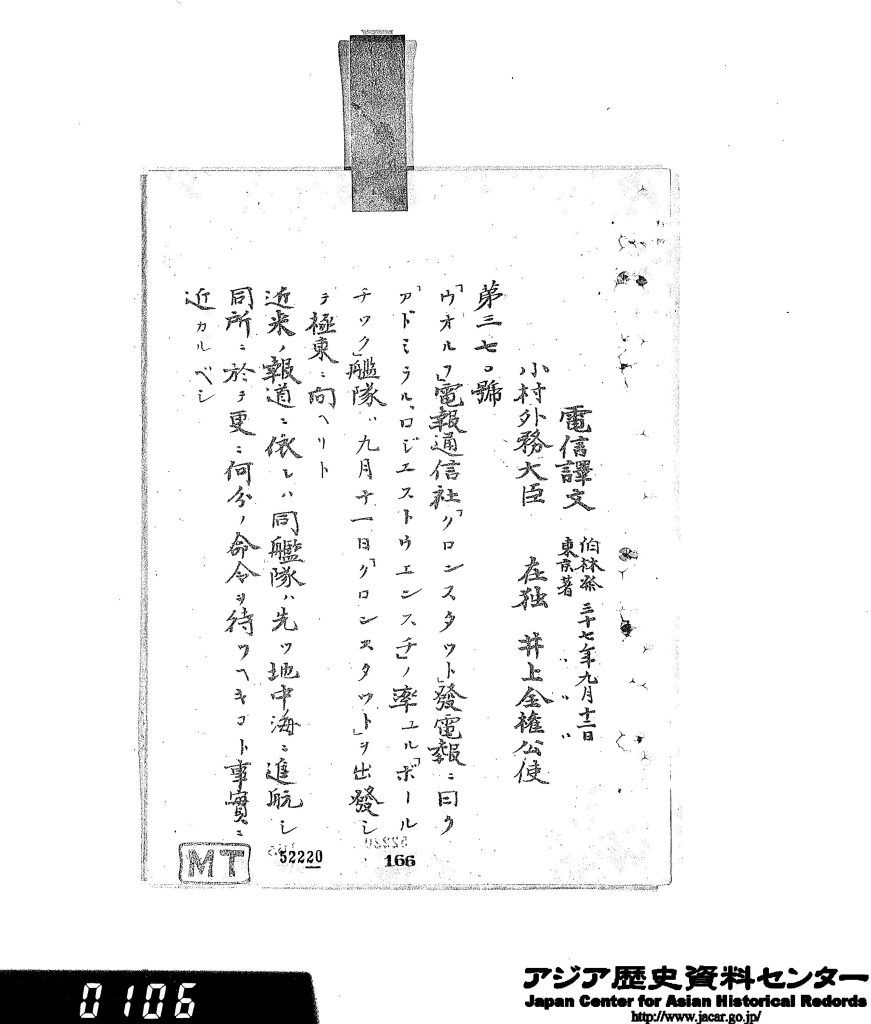 電信譯文
伯林發 三十七年九月十二日
東京著 〃 〃 〃
小村外務大臣 在独 井上全権公使
第三七〇號
「ウオルフ」電報通信社「クロンスタット」發電報ニ曰ク
「アドミラル、ロジエストウエンスチ」ノ率ユル「ボール
チック」艦隊ハ九月十一日「クロンスタット」ヲ出發シ
ヲ極東ニ向ヘリト
近来ノ報道ニ依レハ同艦隊ハ先ツ地中海ニ進航シ
同所ニ於テ更ニ何分ノ命令ヲ待ツヘキコト事實ニ
近カルベシ
MT
52220
166
0106
アジア歴史資料センター
Japan Center for Asian Historical Records
http://www.jacar.go.jp/